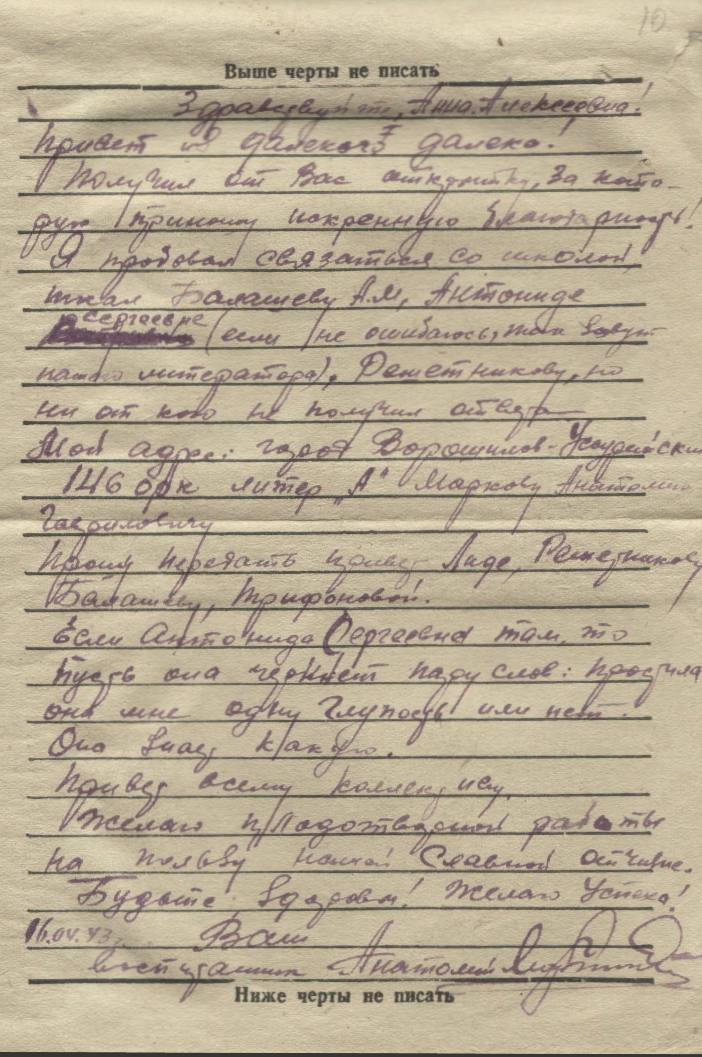 10
Выше черты не писать
Здравствуйте, Анна Алексеевна!
Привет из далекого далека!
Получил от Вас открытку, за кото-
рую приношу искреннюю благодарность!
Я пробовал связаться со школой,
писал Балашеву А.М., Антониде
Сергеевне
(если не ошибаюсь, так зовут
нашего литератора), Решетникову, но
ни от кого не получил ответа
Мой адрес: город Ворошилов-Уссурийский
146 орк литер "А" Маркову Анатолию
Гавриловичу
Прошу передать привет Лиде, Решетникову
Балашеву, Трифоновой.
Если Антонида Сергеевна там, то
пусть она черкнет пару слов: простила
она мне одну глупость или нет.
Она знает какую.
Привет всему коллективу.
Желаю плодотворной работы
на пользу нашей Славной отчизне.
Будьте здоровы! Желаю Успеха!
16.04.43г. Ваш
воспитанник Анатолий
Ниже черты не писать